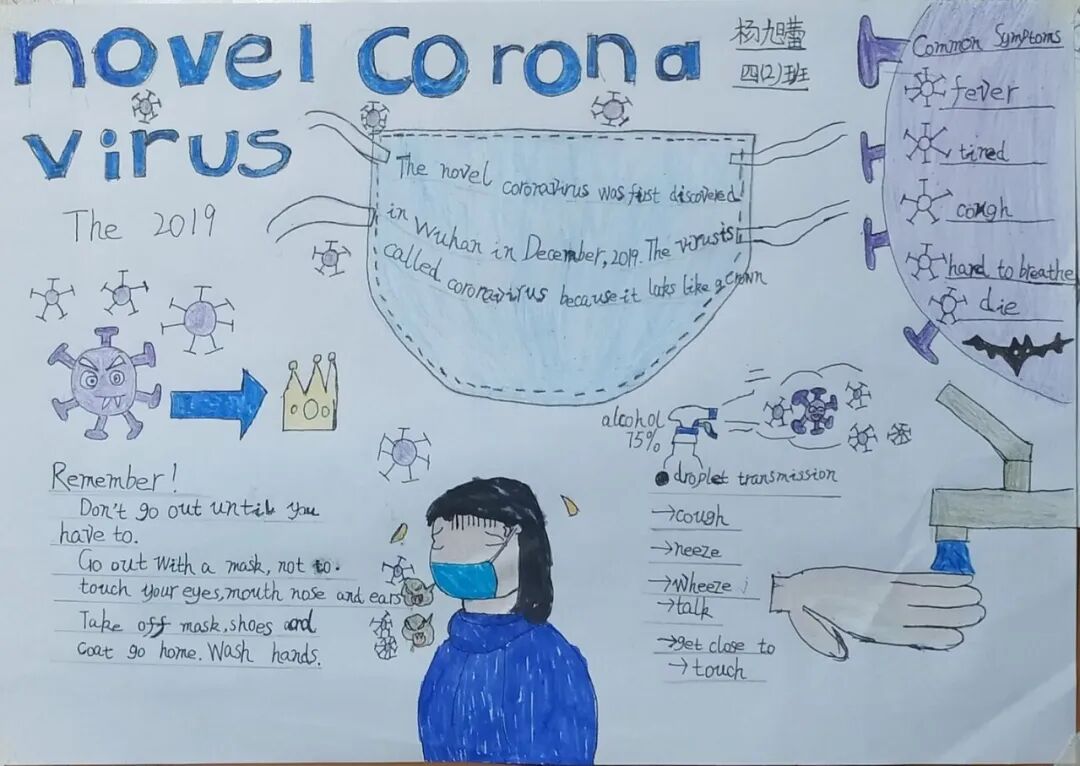 novel corona
virus
杨旭蕾
四(2)班
The 2019
The novel coronavirus was first discovered
in Wuhan in December, 2019. The virus is
called coronavirus because it looks like a crown
Common Symptoms
fever
tired
cough
hard to breathe
die
alcohol
75%
droplet transmission
→cough
→neeze
→wheeze
→talk
→get close to
→touch
Remember!
Don't go out until you
have to.
Go out with a mask, not to.
touch your eyes, mouth nose and ears
Take off mask, shoes and
coat go home. Wash hands.